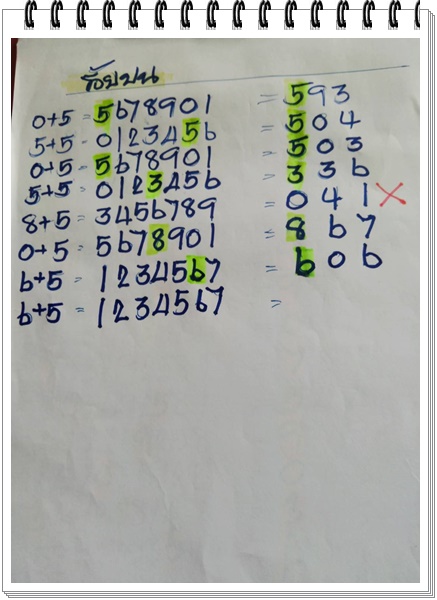 ร้อยบน
0+5 = 5678901 = 593
5+5 = 0123456 = 504
0+5 = 5678901 = 503
5+5 = 0123456 = 336
8+5 = 3456789 = 041 ×
0+5 = 5678901 = 867
6+5 = 1234567 = 606
6+5 = 1234567 =